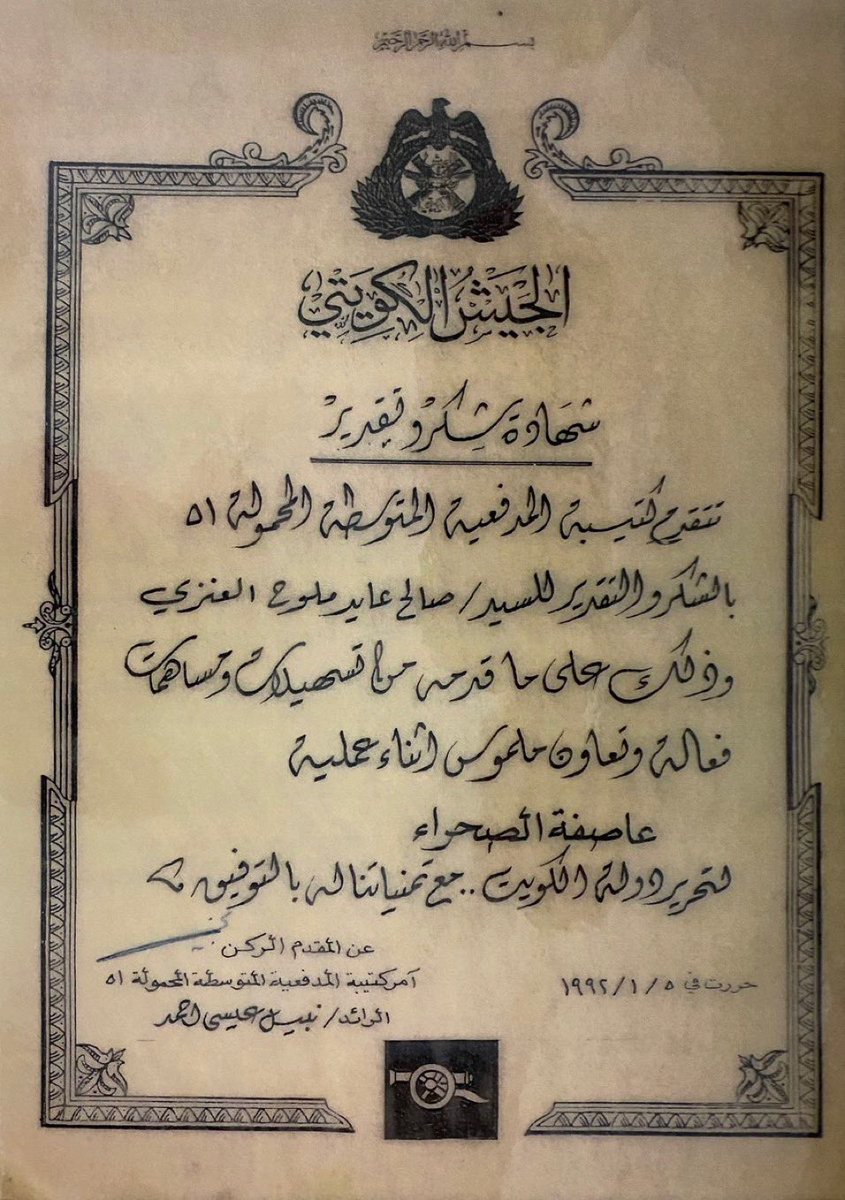 بسم الله الرحمن الرحيم
الجَيش الكويتي
شهادة شكر وتقدير
تتقدم كتيبة المدفعية المتوسطة المحمولة ٥١
بالشكر والتقدير للسيد / صالح عايد ملوح العنزي
وذلك على ما قدمه من تسهيلات ومساهمات
فعالة وتعاون ملموس اثناء عملية
عاصفة الصحراء
لتحرير دولة الكويت .. مع تمنياتنا له بالتوفيق
عن المقدم الركن
آمر كتيبة المدفعية المتوسطة المحمولة ٥١
الرائد / نبيل عيسى احمد
حررت في ٥ / ١ / ١٩٩٢